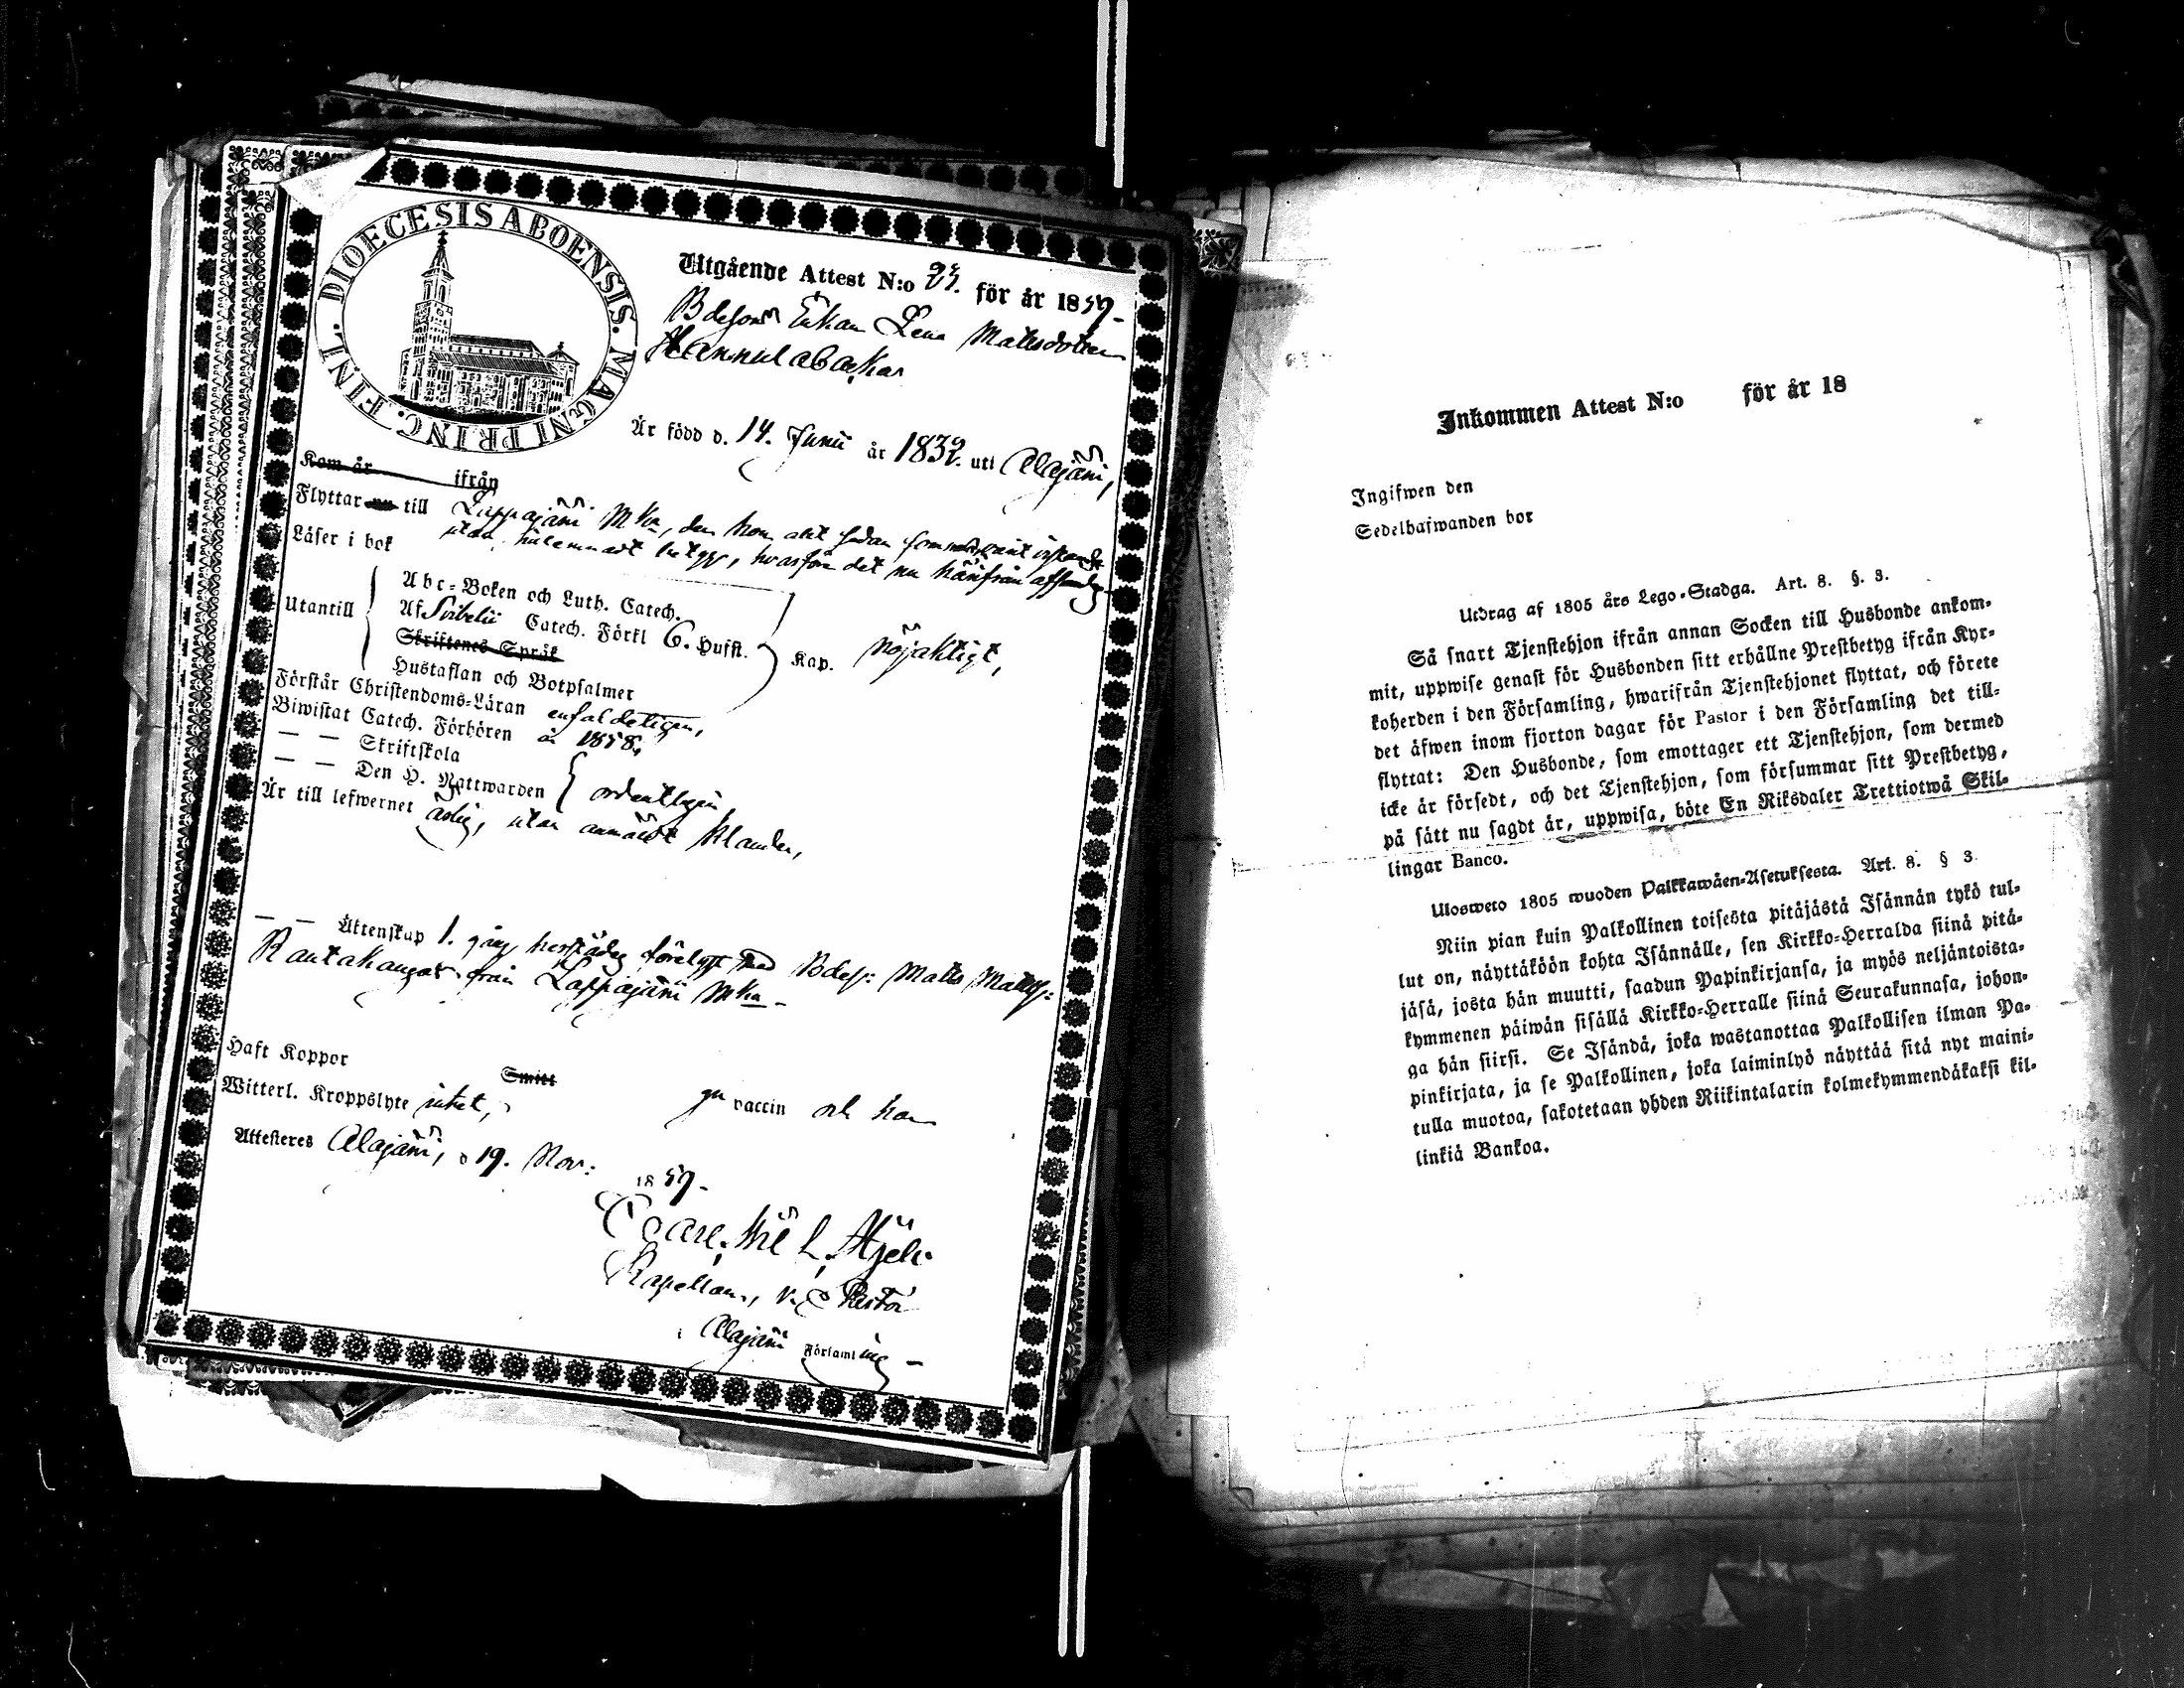 DIOECESIS ABOENSIS. MAGNI PRINC. FINL.
Utgående Attest N:o 23. för år 1859-
Bdeson Enkan Lena Mattsdotter
Hannulabacka
Är född d. 14. Junii år 1832. uti Alajärvi,
Kom år ifrån
Flyttar nu till Lappajärvi Mka, den hon allt sedan sommaren
utan betyg, hvarföre det nu härifrån
Läser i bok
Utantill
Abc-Boken och Luth. Catech.
Af Sebelii Catech. Förkl 6. Hufst.
Skriftenes Språk
Hustaflan och Botpsalmer
Kap. nöjaktigt,
Förstår Christendoms-Läran enfaldeligen,
Biwistat Catech. Förhören år 1858,
— — Skriftskola
— — Den H. Nattwarden ordentligen
Är till lefwernet ärlig, utan anmärkt klander,
— — Äktenskap 1. gång härstädes förelyst med Bdes: Matts Matts:
Rantakangas från Lappajärvi Mka -
Haft Koppor
Smitt
gn vaccin och har
Witterl. Kroppslyte intet,
Attesteres Alajärvi, d 19. Nov: 1859.-
Carl
Kapellan, v. Pastor
Alajärvi Församling -
Inkommen Attest N:o för år 18
Ingifwen den
Sedelhafwanden bor
Utdrag af 1805 års Lego-Stadga. Art. 8. §. 3.
Så snart Tjenstehjon ifrån annan Socken till Husbonde ankom-
mit, uppwise genast för Husbonden sitt erhållne Prestbetyg ifrån Kyr-
koherden i den Församling, hwarifrån Tjenstehjonet flyttat, och förete
det äfwen inom fjorton dagar för Pastor i den Församling det till-
flyttat: Den Husbonde, som emottager ett Tjenstehjon, som dermed
icke är försedt, och det Tjenstehjon, som försummar sitt Prestbetyg,
på sätt nu sagdt är, uppwisa, böte En Riksdaler Trettiotwå Skil-
lingar Banco.
Ulosweto 1805 wuoden Palkkawäen-Asetuksesta. Art. 8. § 3.
Niin pian kuin Palkollinen toisesta pitäjästä Isännän tykö tul-
lut on, näyttäköön kohta Isännälle, sen Kirkko-Herralda siinä pitä-
jäsä, josta hän muutti, saadun Papinkirjansa, ja myös neljäntoista-
kymmenen päiwän sisällä Kirkko-Herralle siinä Seurakunnasa, johon-
ga hän siirsi. Se Isändä, joka wastanottaa Palkollisen ilman Pa-
pinkirjata, ja se Palkollinen, joka laiminlyö näyttää sitä nyt maini-
tulla muotoa, sakotetaan yhden Riikintalarin kolmekymmendäkaksi kil-
linkiä Bankoa.